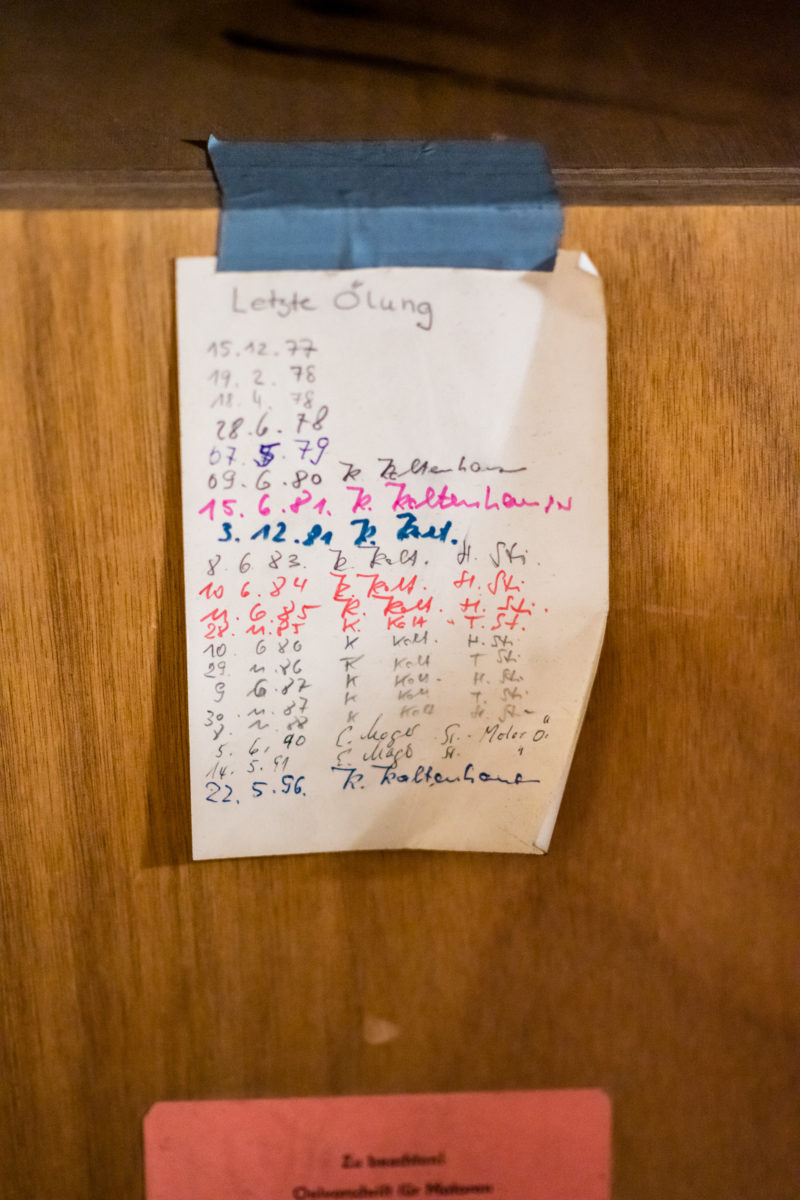 Letzte Ölung
15.12.77
19. 2. 78
18. 4. 78
28.6.78
07. 5. 79
09.6.80 K. Koltenhaus
15.6.81. K. Koltenhaus
3.12.81 K. Kolt.
8. 6. 83. K. Kolt. H. Sti.
10 6.84 K. Kolt. H. Sti
11. 6.85 K. Kolt. H. Sti.
28. 11.85 K. Kolt T. St.
10. 6 86 K Kolt. H. Sti
29. 11.86 K Kolt T Sti
9 6.87 K Kolt. H. Sti
30. 11.87 K Kolt T. Sti
8. 11. 88 K Kolt H. Sti
5. 6. 90 St. Motor Ö.
14. 5.91 St. "
22. 5.96. K. Koltenhaus
Zu beachten!
für Motoren